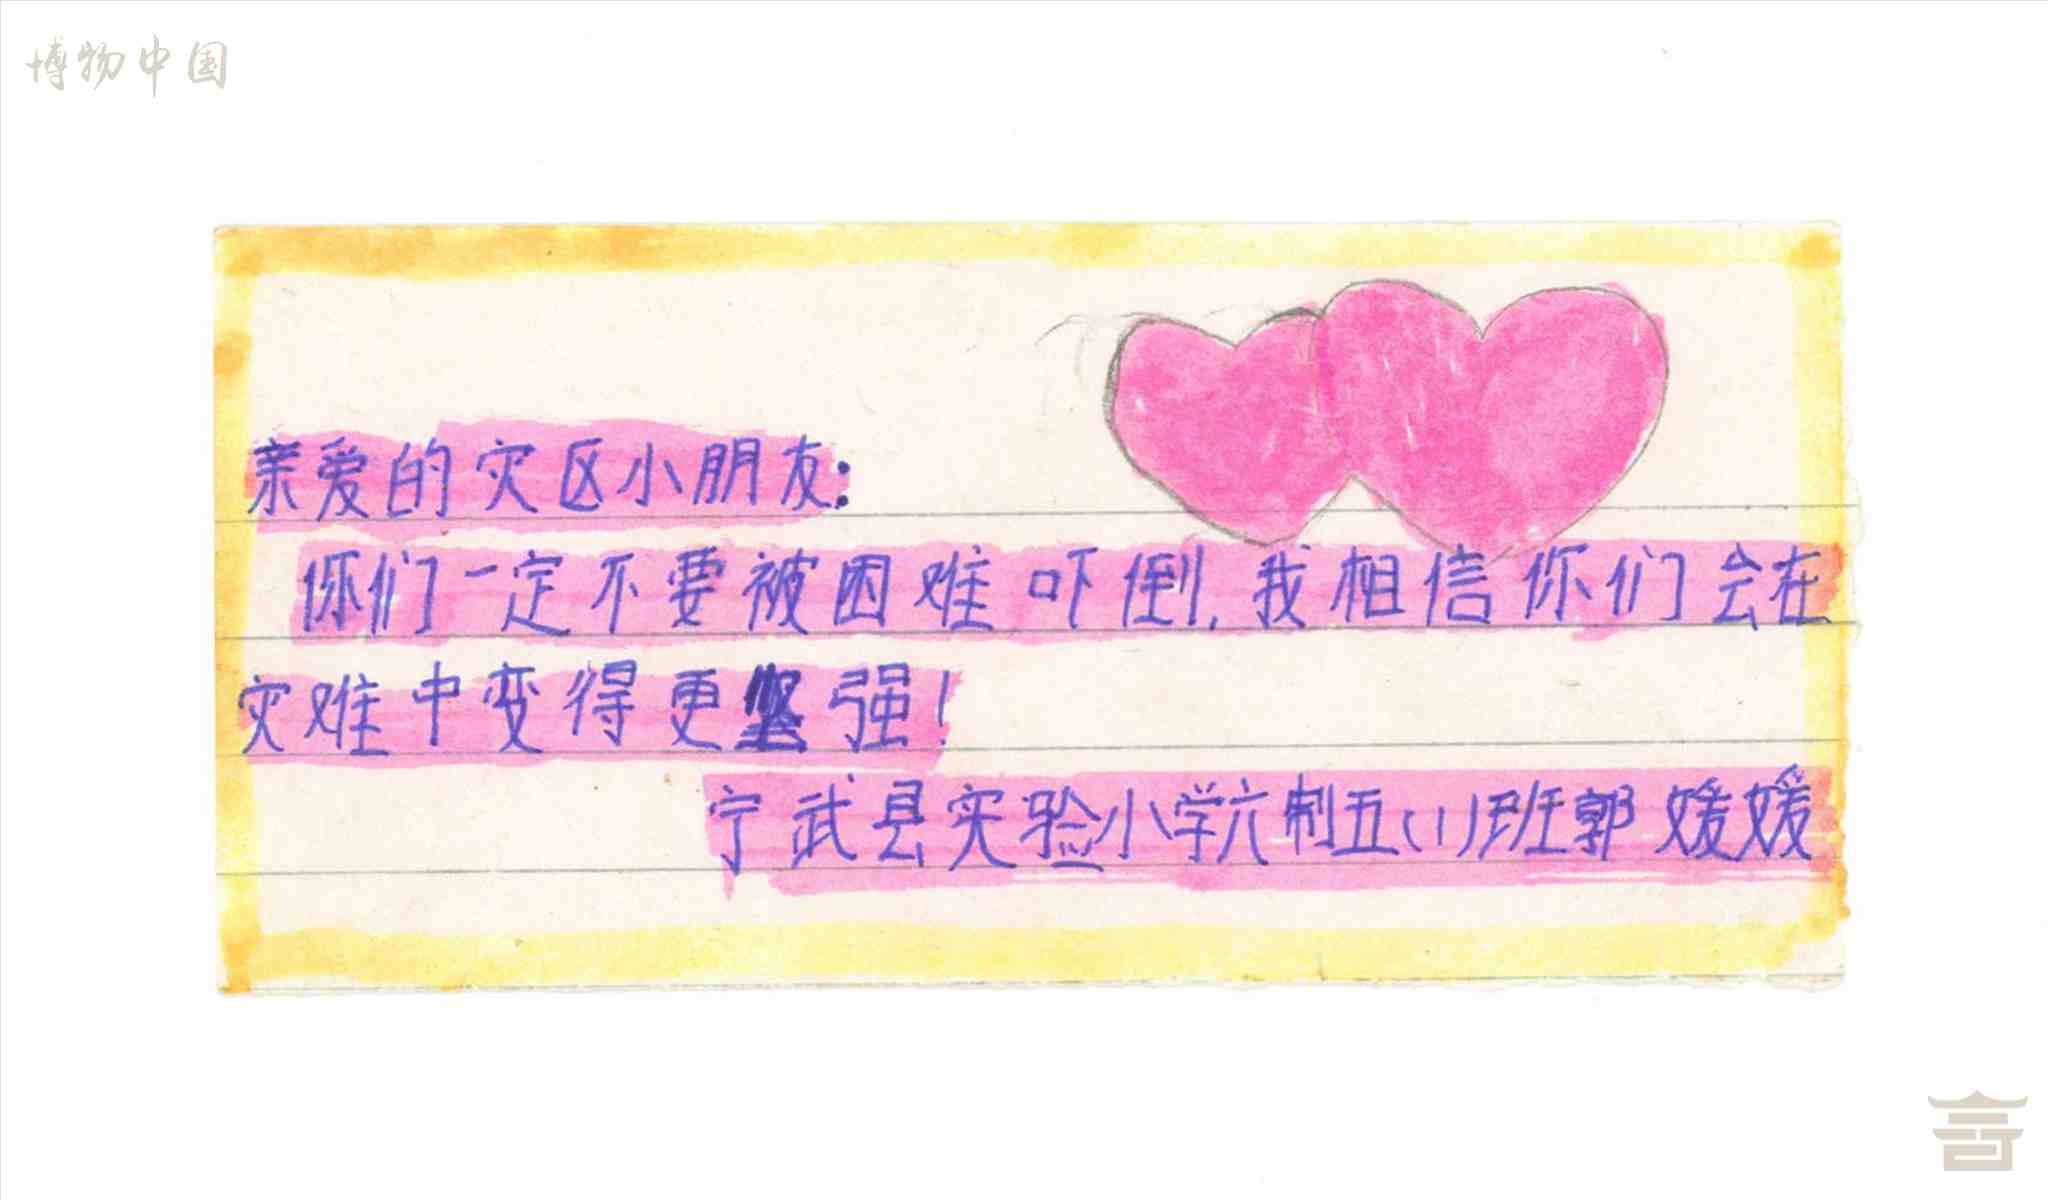 博物中国
亲爱的灾区小朋友:
你们一定不要被困难吓倒,我相信你们会在
灾难中变得更坚强!
宁武县实验小学六制五(1)班郭媛媛